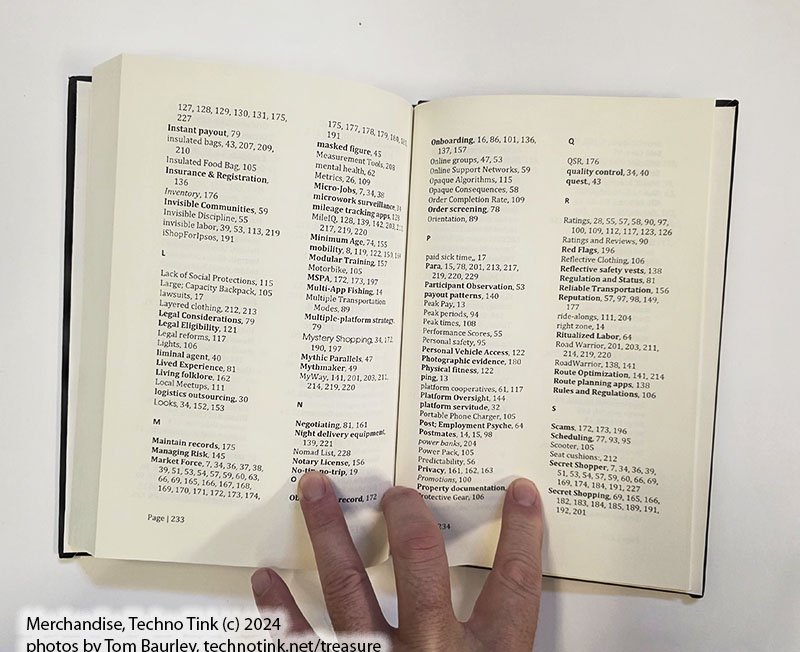 127, 128, 129, 130, 131, 175,
227
Instant payout, 79
insulated bags, 43, 207, 209,
210
Insulated Food Bag, 105
Insurance & Registration,
136
Inventory, 176
Invisible Communities, 59
Invisible Discipline, 55
invisible labor, 39, 53, 113, 219
iShopForIpsos, 191
L
Lack of Social Protections, 115
Large; Capacity Backpack, 105
lawsuits, 17
Layered clothing, 212, 213
Legal Considerations, 79
Legal Eligibility, 121
Legal reforms, 117
Lights, 106
liminal agent, 40
Lived Experience, 81
Living folklore, 162
Local Meetups, 111
logistics outsourcing, 30
Looks, 34, 152, 153
M
Maintain records, 175
Managing Risk, 145
Market Force, 7, 34, 36, 37, 38,
39, 51, 53, 54, 57, 59, 60, 63,
66, 69, 165, 166, 167, 168,
169, 170, 171, 172, 173, 174,
Page | 233
175, 177, 178, 179, 180,
191
masked figure, 45
Measurement Tools, 208
mental health, 62
Metrics, 26, 109
Micro-Jobs, 7, 34, 38
microwork surveillance,
mileage tracking apps, 128
MileIQ, 128, 139, 142, 203,
217, 219, 220
Minimum Age, 74, 155
mobility, 8, 119, 122, 153,
Modular Training, 157
Motorbike, 105
MSPA, 172, 173, 197
Multi-App Fishing, 14
Multiple Transportation
Modes, 89
Multiple-platform strategy,
79
Mystery Shopping, 34, 172,
190, 197
Mythic Parallels, 47
Mythmaker, 49
MyWay, 141, 201, 203,
214, 219, 220
N
Negotiating, 81, 161
Night delivery equipment,
139, 221
Nomad List, 228
Notary License, 156
No-tip, no-trip, 19
O
record, 172
Onboarding, 16, 86, 101, 136,
137, 157
Online groups, 47, 53
Online Support Networks, 59
Opaque Algorithms, 115
Opaque Consequences, 58
Order Completion Rate, 109
Order screening, 78
Orientation, 89
P
paid sick time,, 17
Para, 15, 78, 201, 213, 217,
219, 220, 229
Participant Observation, 53
payout patterns, 140
Peak Pay, 13
Peak periods, 94
Peak times, 108
Performance Scores, 55
Personal safety, 95
Personal Vehicle Access, 122
Photographic evidence, 180
Physical fitness, 122
ping, 13
platform cooperatives, 61, 117
Platform Oversight, 144
platform servitude, 32
Portable Phone Charger, 105
Post; Employment Psyche, 64
Postmates, 14, 15, 98
power banks, 204
Power Pack, 105
Predictability, 56
Privacy, 161, 162, 163
Promotions, 100
Property documentation,
Protective Gear, 106
234
Q
QSR, 176
quality control, 34, 40
quest, 43
R
Ratings, 28, 55, 57, 58, 90, 97,
100, 109, 112, 117, 123, 126
Ratings and Reviews, 90
Red Flags, 196
Reflective Clothing, 106
Reflective safety vests, 138
Regulation and Status, 81
Reliable Transportation, 156
Reputation, 57, 97, 98, 149,
177
ride-alongs, 111, 204
right zone, 14
Ritualized Labor, 64
Road Warrior, 201, 203, 211,
214, 219, 220
RoadWarrior, 138, 141
Route Optimization, 141, 214
Route planning apps, 138
Rules and Regulations, 106
S
Scams, 172, 173, 196
Scheduling, 77, 93, 95
Scooter, 105
Seat cushions:, 212
Secret Shopper, 7, 34, 36, 39,
51, 53, 54, 57, 59, 60, 66, 69,
169, 174, 184, 191, 227
Secret Shopping, 69, 165, 166,
182, 183, 184, 185, 189, 191,
192, 201
Merchandise, Techno Tink (c) 2024
photos by Tom Baurley, technotink.net/treasure